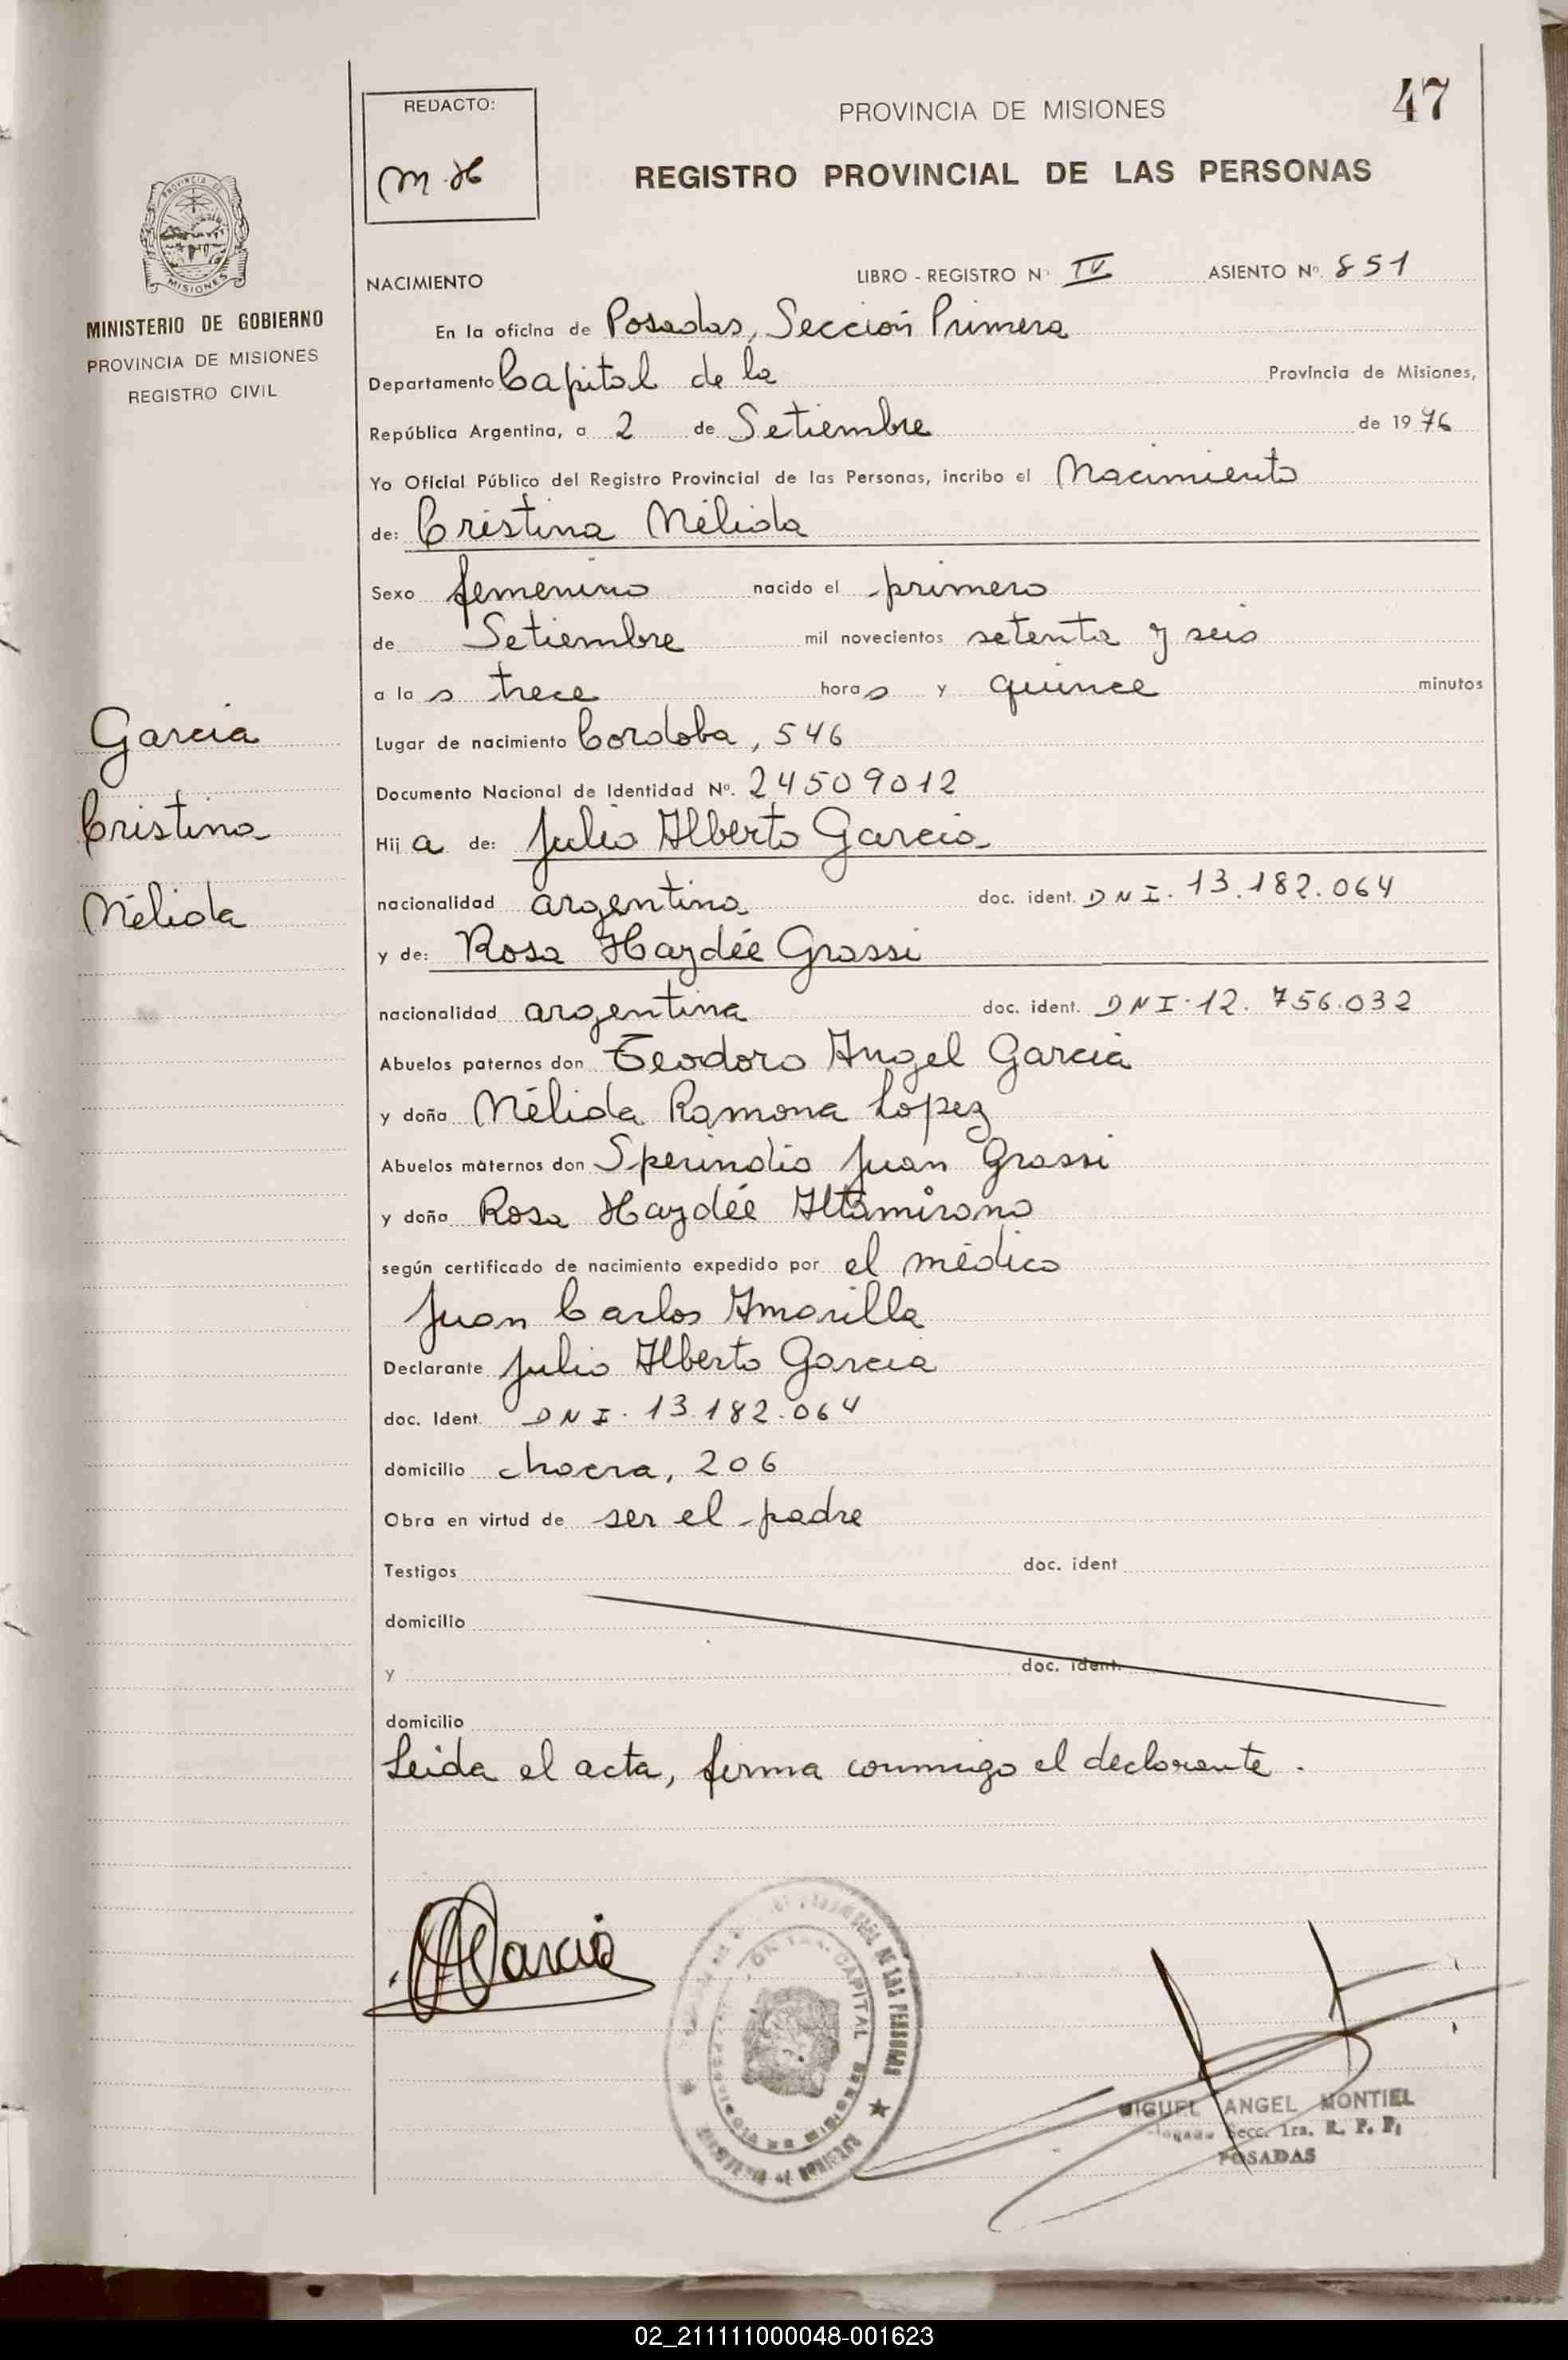 47
REDACTO:
M.H
PROVINCIA DE MISIONES
REGISTRO PROVINCIAL DE LAS PERSONAS
PROVINCIA DE
MISIONES
MINISTERIO DE GOBIERNO
PROVINCIA DE MISIONES
REGISTRO CIVIL
NACIMIENTO LIBRO - REGISTRO Nº IV ASIENTO Nº. 851
En la oficina de Posadas, Sección Primera
Departamento Capital de la Provincia de Misiones,
República Argentina, a 2 de Setiembre de 1976
Yo Oficial Público del Registro Provincial de las Personas, incribo el Nacimiento
de: Cristina Nélida
Sexo femenino nacido el primero
de Setiembre mil novecientos setenta y seis
a la s trece hora s y quince minutos
Lugar de nacimiento Cordoba, 546
Documento Nacional de Identidad Nº. 24509012
Hij a de: Julio Alberto Garcia
nacionalidad argentina doc. ident. DNI. 13.182.064
y de: Rosa Haydée Grassi
nacionalidad argentina doc. ident. DNI. 12.756.032
Abuelos paternos don Teodoro Angel Garcia
y doña Nélida Ramona Lopez
Abuelos maternos don Sperindio Juan Grassi
y doña Rosa Haydée Altamirano
según certificado de nacimiento expedido por el médico
Juan Carlos Amarilla
Declarante Julio Alberto Garcia
doc. Ident. DNI. 13.182.064
domicilio chacra, 206
Obra en virtud de ser el padre
Testigos doc. ident
domicilio
y doc. ident.
domicilio
Leida el acta, firma conmigo el declarante.
Garcia
Cristina
Nélida
Garcia
DE LAS PERSONAS
CAPITAL
MIGUEL ANGEL MONTIEL
Secc. 1ra. R. P. P.
POSADAS
02_211111000048-001623